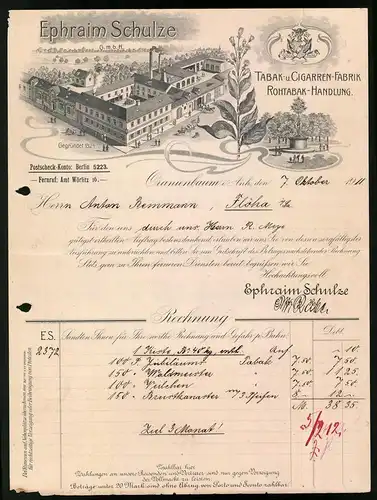 Ephraim Schulze
G.m.b.H.
TABAK-u. CIGARREN-FABRIK
ROHTABAK-HANDLUNG.
Gegründet 1821.
Postscheck-Konto: Berlin 5223.
Fernruf: Amt Wörlitz 16.
Oranienbaum i. Anh., den 7. Oktober 1911
Herrn Anton Bemmann, Flöha
Für den uns durch uns. Herrn R. Meye
gütigst ertheilten Auftrag bestens dankend, erlauben wir uns Sie von dessen sorgfältigster
Ausführung zu benachrichten und bitten Sie um Gutschrift des Betrages nachstehender Rechnung
Stets gern zu Ihren ferneren Diensten bereit begrüßen wir Sie
Hochachtungsvoll
Ephraim Schulze
Rechnung
E.S.
Sandten Ihnen für Ihre werthe Rechnung und Gefahr p. Bahn:
2372
1 Kiste Bo 40 kg enth.
10
100 P. Jubiläumst Tabak 7,50 7 50
150 " Waldmeister " 7,50 11 25
100 " Veilchen " 7,50 7 50
150 " Brustkanaster m 3 Pfeifen 8 12
M. 38 35
Ziel 3 Monat!
Zahlbar hier
Zahlungen an unsere Reisenden und Vertreter sind nur gegen Vorzeigung
der Vollmacht zu leisten.
Beträge unter 20 Mark sind ohne Abzug von Porto und Sconto zahlbar.